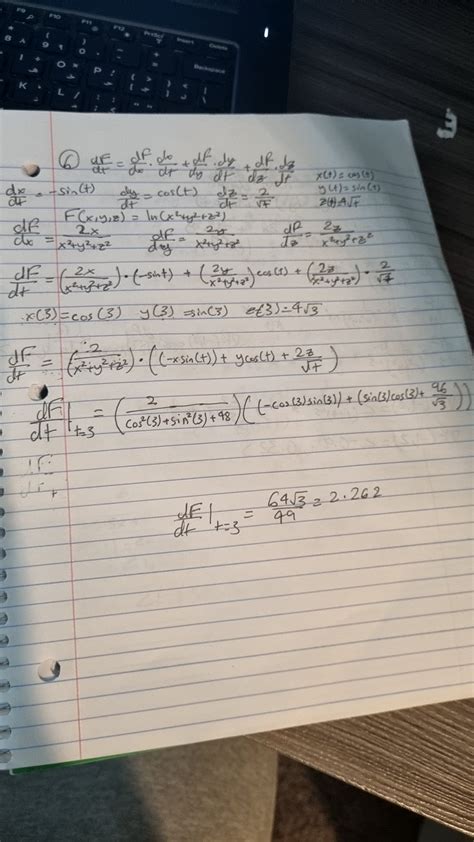 F10 PrtScr Insert Delete
Backspace
6) dF/dt = dF/dx · dx/dt + dF/dy · dy/dt + dF/dz · dz/dt x(t) = cos(t)
dx/dt = -sin(t) dy/dt = cos(t) dz/dt = 2/√t y(t) = sin(t)
F(x,y,z) = ln(x²+y²+z²) z(t) = 4√t
dF/dx = 2x/(x²+y²+z²) dF/dy = 2y/(x²+y²+z²) dF/dz = 2z/(x²+y²+z²)
dF/dt = (2x/(x²+y²+z²)) · (-sint) + (2y/(x²+y²+z²)) cos(t) + (2z/(x²+y²+z²)) · 2/√t
x(3) = cos(3) y(3) = sin(3) z(3) = 4√3
dF/dt = (2/(x²+y²+z²)) · ((-xsin(t)) + ycos(t) + 2z/√t)
dF/dt |t=3 = (2/(cos²(3)+sin²(3)+48)) ((-cos(3)sin(3)) + (sin(3)cos(3) + 96/√3))
dF/dt |t=3 = 64√3/49 = 2.262